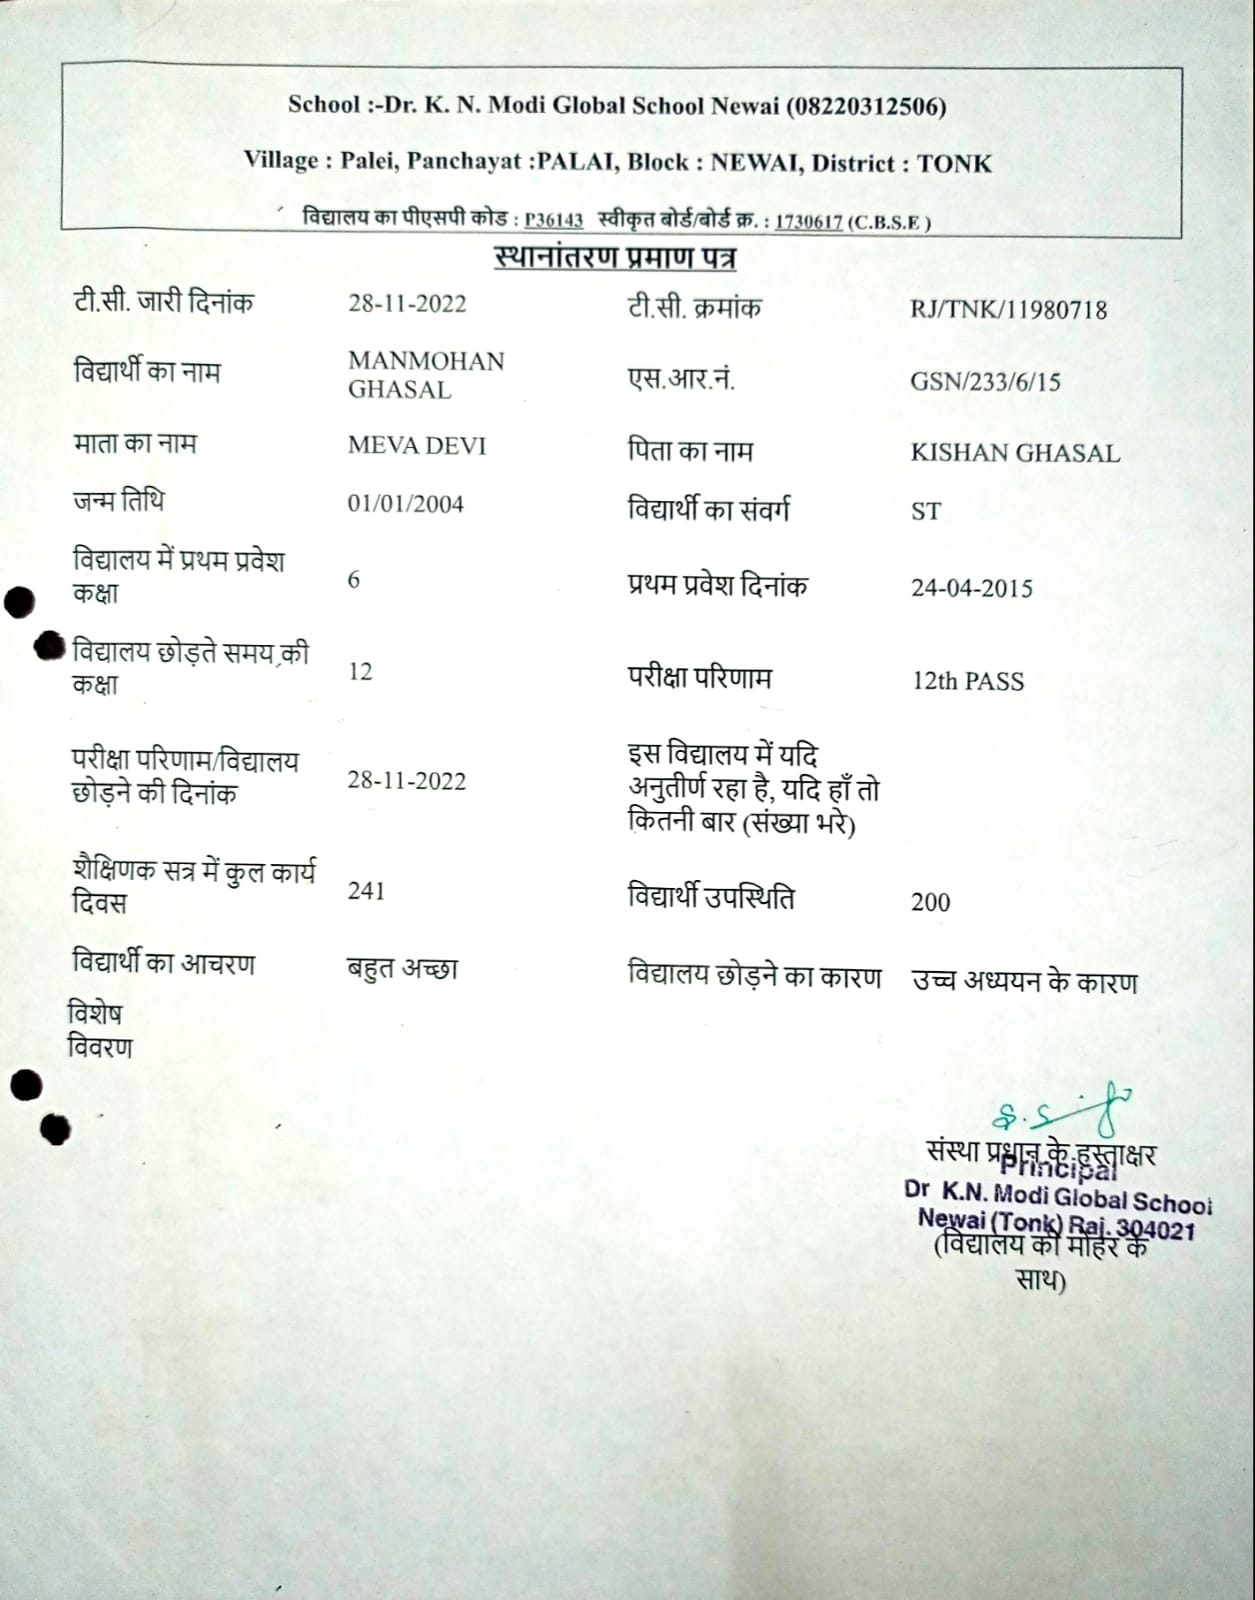 School :-Dr. K. N. Modi Global School Newai (08220312506)
Village : Palei, Panchayat :PALAI, Block : NEWAI, District : TONK
विद्यालय का पीएसपी कोड : P36143 स्वीकृत बोर्ड/बोर्ड क्र. : 1730617 (C.B.S.E )
स्थानांतरण प्रमाण पत्र
टी.सी. जारी दिनांक 28-11-2022 टी.सी. क्रमांक RJ/TNK/11980718
विद्यार्थी का नाम MANMOHAN
GHASAL एस.आर.नं. GSN/233/6/15
माता का नाम MEVA DEVI पिता का नाम KISHAN GHASAL
जन्म तिथि 01/01/2004 विद्यार्थी का संवर्ग ST
विद्यालय में प्रथम प्रवेश
कक्षा 6 प्रथम प्रवेश दिनांक 24-04-2015
विद्यालय छोड़ते समय की
कक्षा 12 परीक्षा परिणाम 12th PASS
परीक्षा परिणाम/विद्यालय
छोड़ने की दिनांक 28-11-2022
इस विद्यालय में यदि
अनुतीर्ण रहा है, यदि हाँ तो
कितनी बार (संख्या भरे)
शैक्षिणक सत्र में कुल कार्य
दिवस 241 विद्यार्थी उपस्थिति 200
विद्यार्थी का आचरण बहुत अच्छा विद्यालय छोड़ने का कारण उच्च अध्ययन के कारण
विशेष
विवरण
संस्था प्रधान के हस्ताक्षर
Principal
Dr K.N. Modi Global School
Newai (Tonk) Raj. 304021
(विद्यालय की मोहर के
साथ)